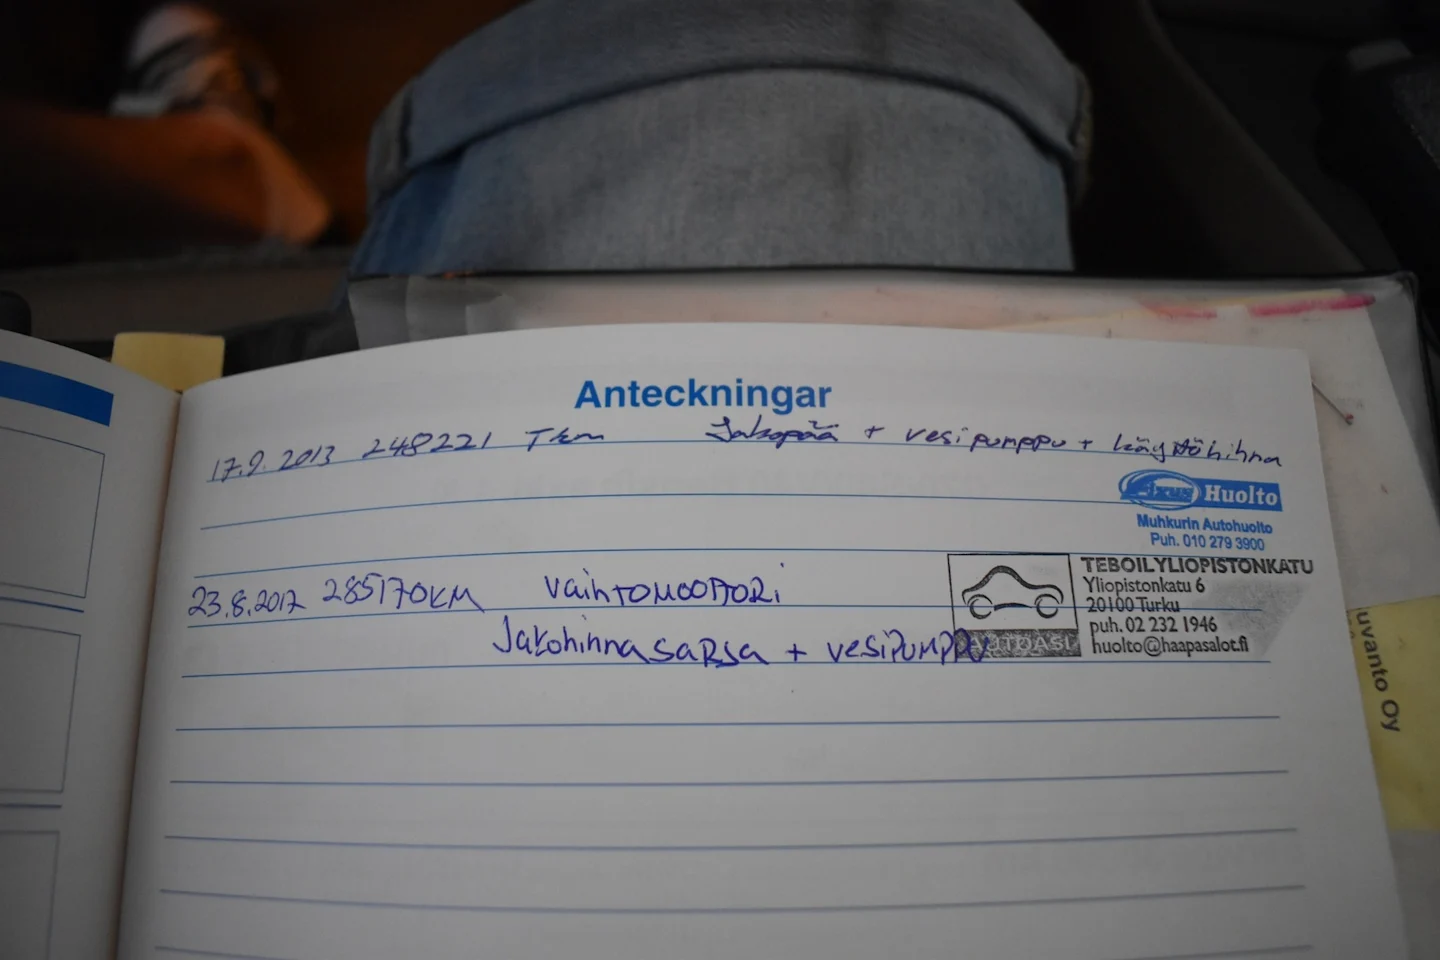 Anteckningar
17.9.2013 248221 Tkm Jakopää + vesipumppu + käyttöhihna
Fixus Huolto
Muhkurin Autohuolto
Puh. 010 279 3900
23.8.2017 285170KM VaihTOMOOTTORi
JakohihnasaRja + vesiPUMPPU
TEBOIL YLIOPISTONKATU
Yliopistonkatu 6
20100 Turku
puh. 02 232 1946
huolto@haapasalot.fi
AUTOASI
uvanto Oy